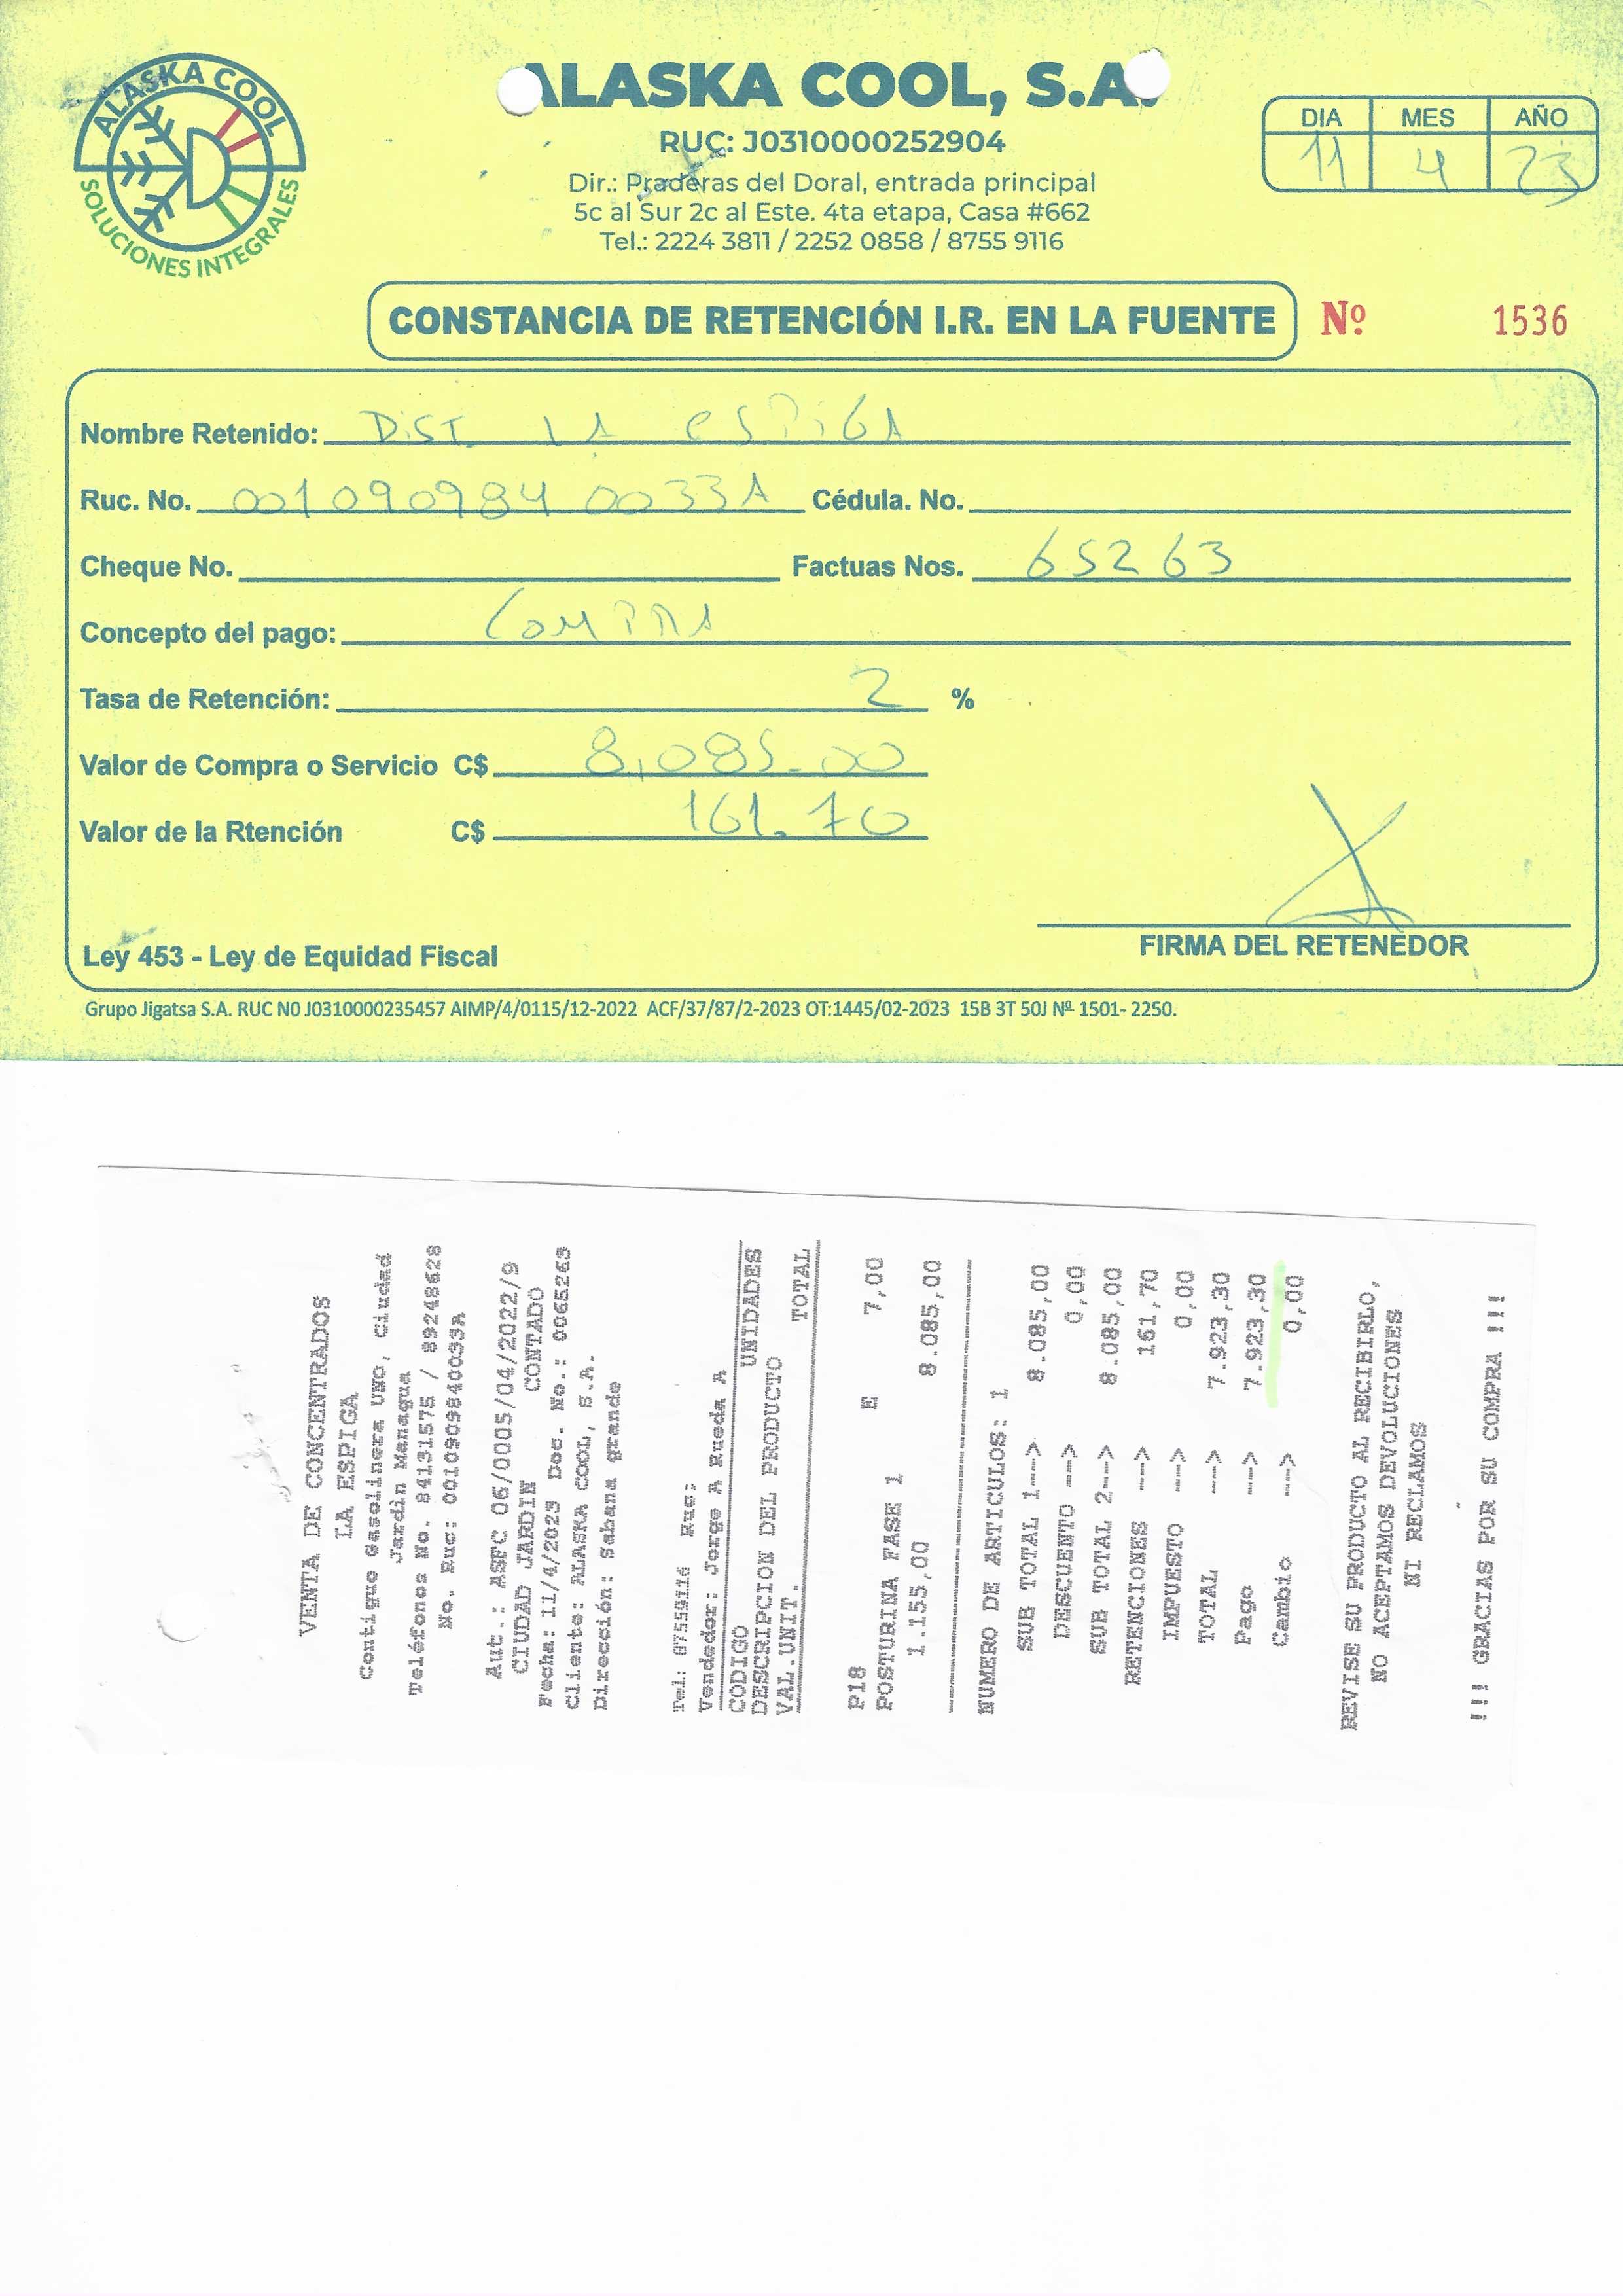 ALASKA COOL
SOLUCIONES INTEGRALES
ALASKA COOL, S.A.
RUC: J0310000252904
Dir.: Praderas del Doral, entrada principal
5c al Sur 2c al Este. 4ta etapa, Casa #662
Tel.: 2224 3811 / 2252 0858 / 8755 9116
DIA MES AÑO
11 4 23
CONSTANCIA DE RETENCIÓN I.R. EN LA FUENTE Nº 1536
Nombre Retenido: DIST. LA ESPIGA
Ruc. No. 0010909840033A Cédula. No.
Cheque No. Factuas Nos. 65263
Concepto del pago: COMPRA
Tasa de Retención: 2 %
Valor de Compra o Servicio C$ 8,085.00
Valor de la Rtención C$ 161.70
FIRMA DEL RETENEDOR
Ley 453 - Ley de Equidad Fiscal
Grupo Jigatsa S.A. RUC N0 J0310000235457 AIMP/4/0115/12-2022 ACF/37/87/2-2023 OT:1445/02-2023 15B 3T 50J Nº 1501- 2250.
VENTA DE CONCENTRADOS
LA ESPIGA
Contigue Gasolinera UNO, Ciudad
Jardin Managua
Teléfonos No. 84131575 / 89248628
No. Ruc: 0010909840033A
Aut.: ASFC 06/0005/04/2022/9
CIUDAD JARDIN CONTADO
Fecha: 11/4/2023 Doc. No.: 0065263
Cliente: ALASKA COOL, S.A.
Dirección: Sabana grande
Tel.: 87559116 Ruc:
Vendedor: Jorge A Rueda A
CODIGO UNIDADES
DESCRIPCION DEL PRODUCTO
VAL.UNIT. TOTAL
P18 E 7,00
POSTURINA FASE 1
1.155,00 8.085,00
NUMERO DE ARTICULOS: 1
SUB TOTAL 1--> 8.085,00
DESCUENTO --> 0,00
SUB TOTAL 2--> 8.085,00
RETENCIONES --> 161,70
IMPUESTO --> 0,00
TOTAL --> 7.923,30
Pago --> 7.923,30
Cambio --> 0,00
REVISE SU PRODUCTO AL RECIBIRLO,
NO ACEPTAMOS DEVOLUCIONES
NI RECLAMOS
!!! GRACIAS POR SU COMPRA !!!